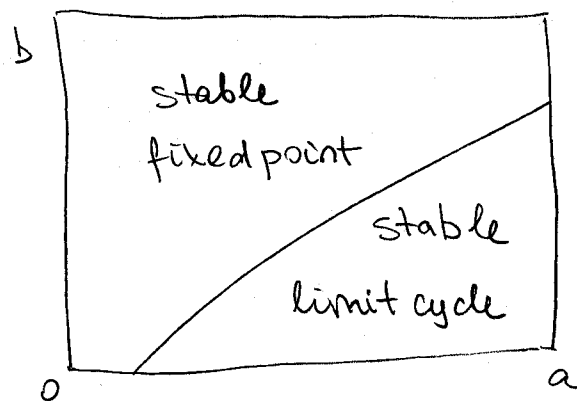 b
stable
fixed point
stable
limit cycle
0
a